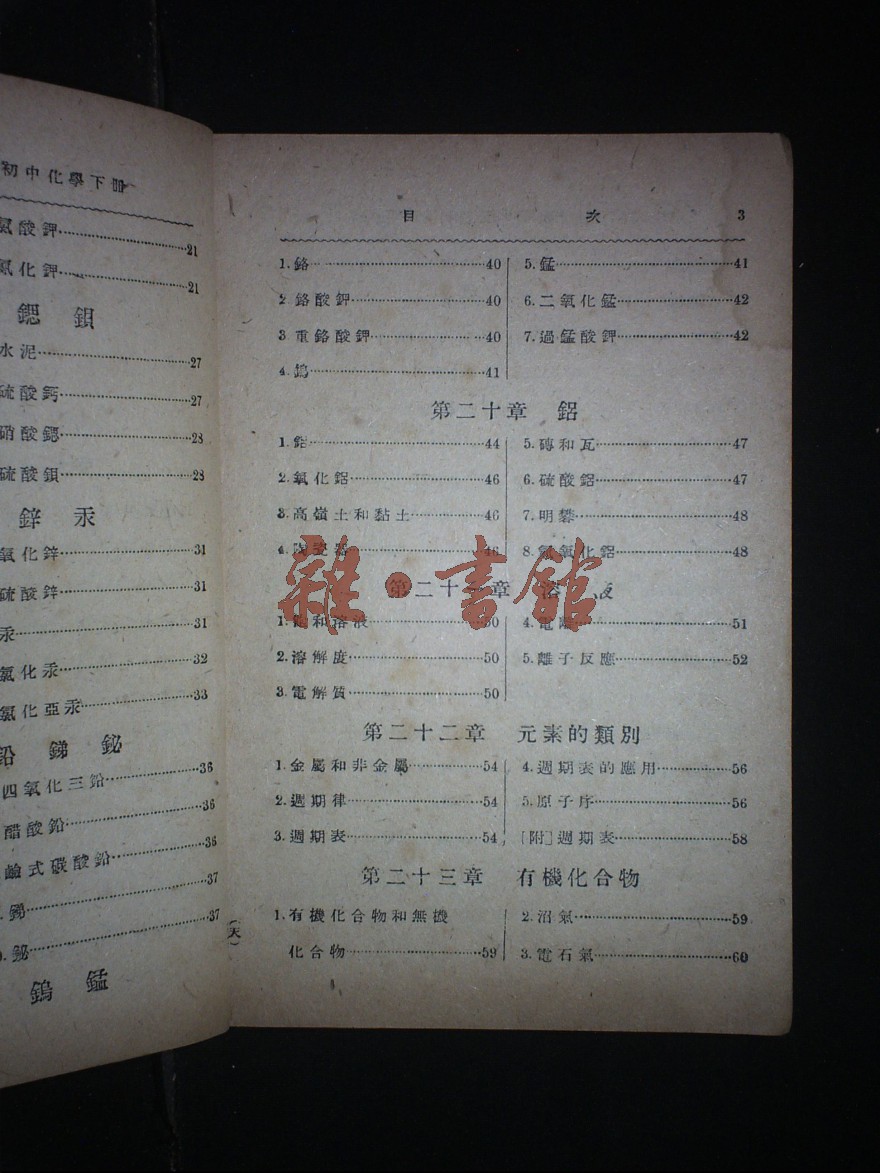 初中化學下冊
酸鉀……21
化鉀……21
鍶 鋇
水泥……27
硫酸鈣……27
硝酸鍶……28
硫酸鋇……28
鋅 汞
氧化鋅……31
硫酸鋅……31
汞……31
氯化汞……32
氯化亞汞……33
鉛 銻 鉍
四氧化三鉛……36
醋酸鉛……36
鹼式碳酸鉛……36
銻……37
鉍……37
鎢 錳
目 次 3
1.鉻……40
2.鉻酸鉀……40
3.重鉻酸鉀……40
4.鎢……41
5.錳……41
6.二氧化錳……42
7.過錳酸鉀……42
第二十章 鋁
1.鋁……44
2.氧化鋁……46
3.高嶺土和黏土……46
4.陶瓷器……46
5.磚和瓦……47
6.硫酸鋁……47
7.明礬……48
8.氫氧化鋁……48
第二十一章 溶液
1.飽和溶液……50
2.溶解度……50
3.電解質……50
4.電離……51
5.離子反應……52
第二十二章 元素的類別
1.金屬和非金屬……54
2.週期律……54
3.週期表……54
4.週期表的應用……56
5.原子序……56
[附]週期表……58
第二十三章 有機化合物
1.有機化合物和無機
化合物……59
2.沼氣……59
3.電石氣……60
(天)
雜·書館